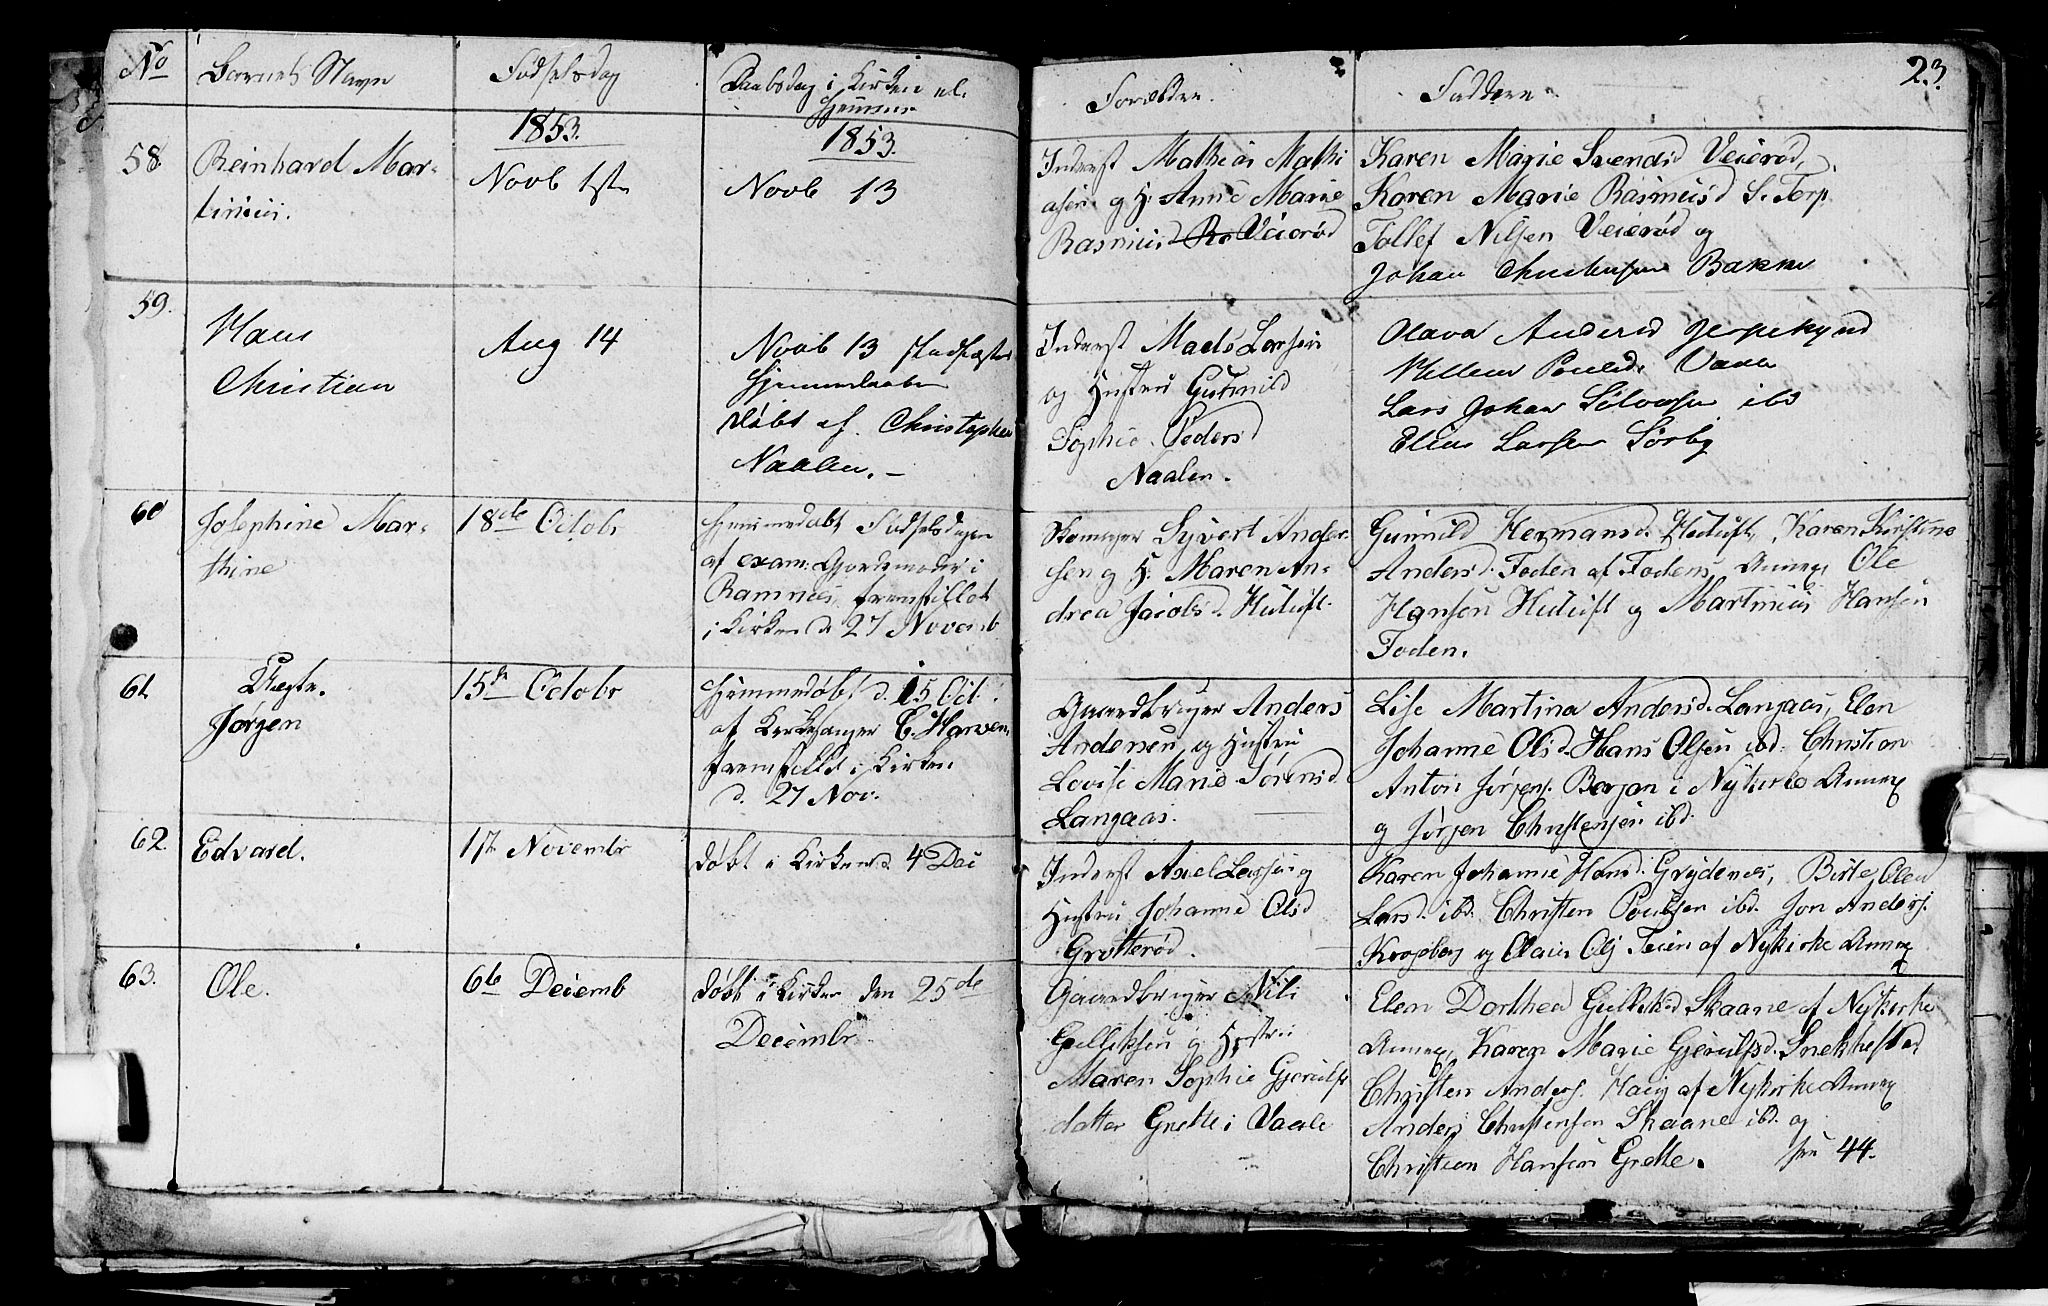 23.
No
Barnets Navn
Fødselsdag
Daabsdag i Kirken el.
Hjemme
Forældre.
Faddere
58.
Reinhard Mar-
tinius.
1853.
Novb 1ste
1853.
Novb 13
Inderst Mathias Mathi
asen g H. Anne Marie
Rasmusd Veierød
Karen Marie Svendsd Veierød,
Karen Marie Rasmusd S. Torp
Tollef Nilsen Veierød og
Johan Christensen Bakke
59.
Hans
Christian
Aug 14
Novb 13 stadfæstet
Hjemmedaaben
døbt af Christopher
Naalen. –
Inderst Mads Larsen
og Hustru Gunnild
Sophie Pedersd
Naalen.
Olava Andersd Jerpekjnd
Lars Johan Sølvesen ibd
Elias Larsen Sørby
60
Josephine Mar-
thine
18de Octobr
Hjemmedøbt Fødselsdagen
af exam: Gjordemoder i
Ramnes, fremstillet
i Kirken d 27 Novemb
Skomager Syvert Ander-
sen g H. Maren An-
drea Jacobsd. Hutuft.
Gunnild Hermansd. Hutuft, Karen Kirstine
Andersd. Foden af Fodens Annex Ole
Hansen Hutuft og Martinius Hansen
Foden.
61.
Ægte.
Jørgen
15de Octobr
Hjemmedøbt d. 15 Oct.
af Kirkesanger C. Hansen
fremstillt i Kirken
d. 27 Nov.
Gaardbruger Anders
Andersen og Hustru
Lovise Marie Sørensd
Langaas.
Lise Martina Andersd. Langaas, Elen
Johanne Olsd. Hans Olsen ibd. Christian
Anton Jørgens. Borjan i Nykirke Annex
og Jørgen Christensen ibd.
62.
Edvard.
17de Novembr
døbt i Kirken d. 4 Dec
Inderst Axel Larsen g
Hustru Johanne Olsd
Grotterød.
Karen Johanne Hansd. Grydenes, Birte Olea
Larsd. ibd. Christen Poulsen ibd. Jon Anders.
Krogsberg og Olaus Ols Teien af Nykirke Annex
63.
Ole.
6te Decemb
døbt i Kirken den 25de
Decembr
Gaardbruger Nils
Gulliksen g Hustru
Maren Sophie Gjerulfs
datter Grette i Vaale
Elen Dorthea Gulliksd Skaane af Nykirke
Annex, Karen Marie Gjerulfsd. Snekkestad
Christen Anders. Haug af Nykirke Annex
Anders Christensen Skaane ibd. og
Christian Hansen Grette. see 44.